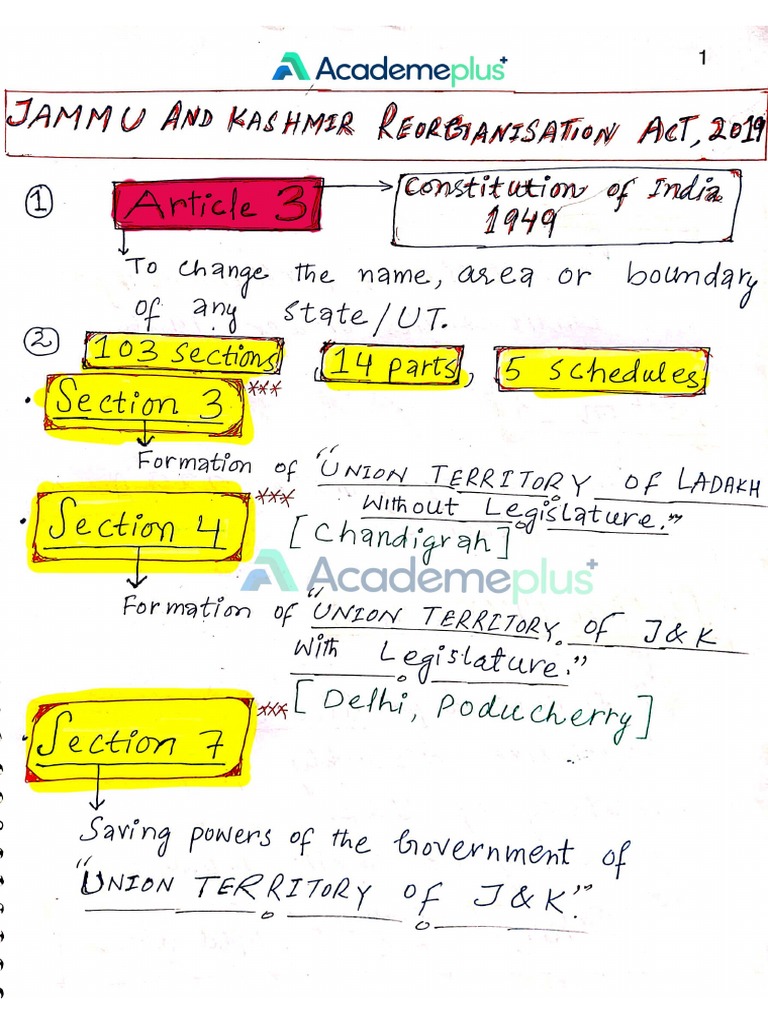 Academeplus+
1
JAMMU AND KASHMIR REORGANISATION ACT, 2019
① Article 3 → Constitution of India
1949
To change the name, area or boundary
of any state/UT.
② 103 sections 14 parts, 5 schedules
• Section 3 ***
Formation of "UNION TERRITORY OF LADAKH
without Legislature."
[Chandigrah]
• Section 4 ***
Academeplus+
Formation of "UNION TERRITORY OF J&K
with Legislature."
[Delhi, Poducherry]
• Section 7 ***
Saving powers of the Government of
"UNION TERRITORY OF J&K."